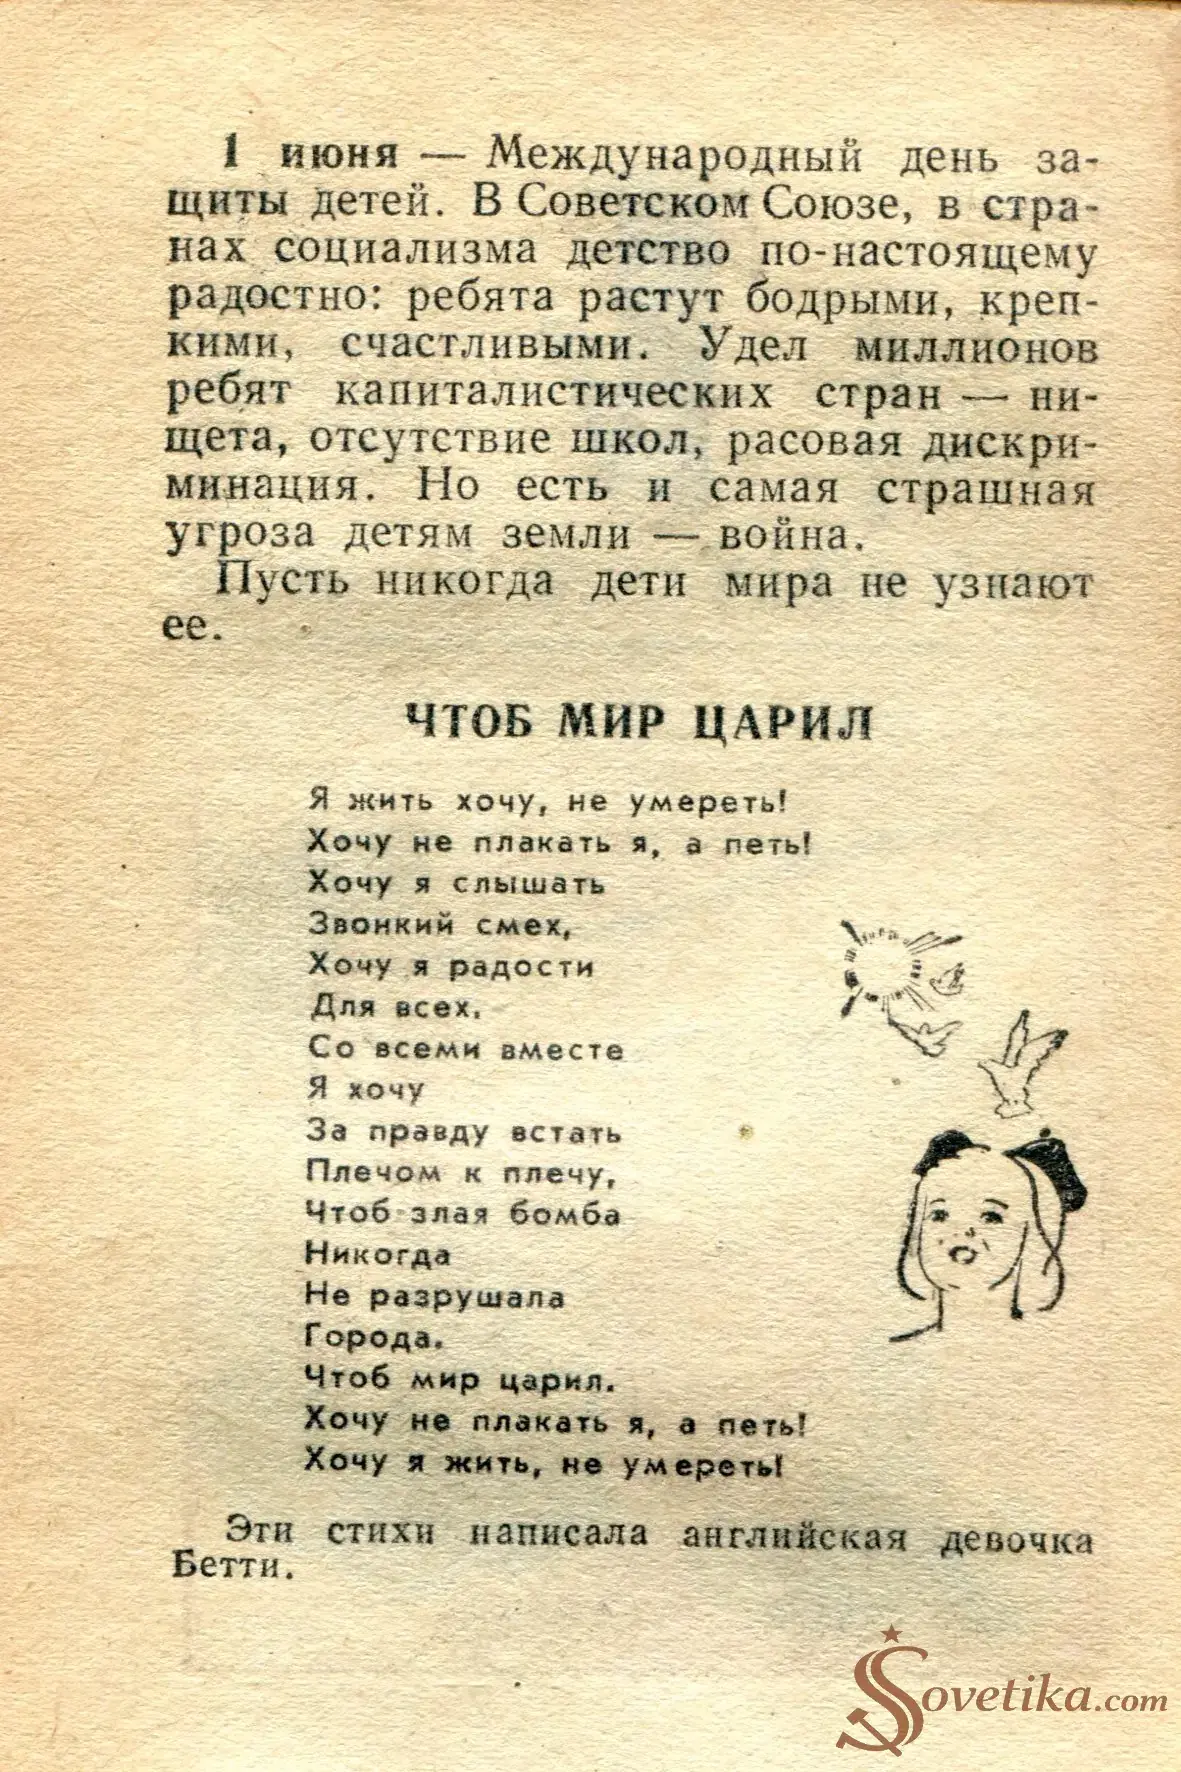 1 июня — Международный день за-
щиты детей. В Советском Союзе, в стра-
нах социализма детство по-настоящему
радостно: ребята растут бодрыми, креп-
кими, счастливыми. Удел миллионов
ребят капиталистических стран — ни-
щета, отсутствие школ, расовая дискри-
минация. Но есть и самая страшная
угроза детям земли — война.
Пусть никогда дети мира не узнают
ее.
ЧТОБ МИР ЦАРИЛ
Я жить хочу, не умереть!
Хочу не плакать я, а петь!
Хочу я слышать
Звонкий смех,
Хочу я радости
Для всех.
Со всеми вместе
Я хочу
За правду встать
Плечом к плечу,
Чтоб злая бомба
Никогда
Не разрушала
Города.
Чтоб мир царил.
Хочу не плакать я, а петь!
Хочу я жить, не умереть!
Эти стихи написала английская девочка
Бетти.
Sovetika.com